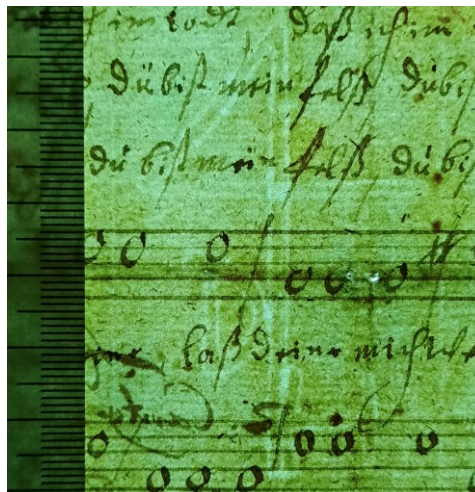 im todt daß ich im
dü bist mein felß dübi
dü bist mein felß, dü bis
laß deiner mich